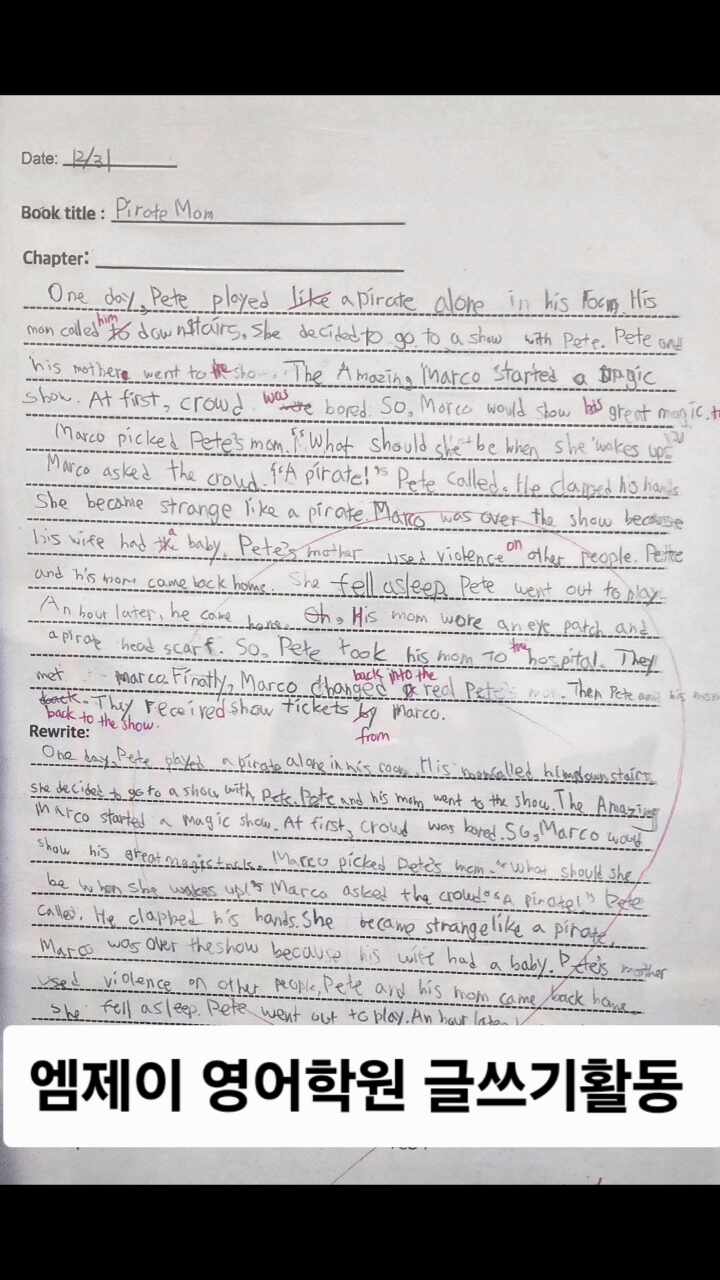 Date: 12/31
Book title : Pirate Mom
Chapter:
One day, Pete played like a pirate alone in his room. His
him
mom called to downstairs. She decided to go to a show with Pete. Pete and
his mother went to the show. The Amazing Marco started a magic
show. At first, crowd was were bored. So, Marco would show his great magic.
Marco picked Pete's mom. "What should she be when she wakes up?"
Marco asked the crowd. "A pirate!" Pete called. He clapped his hands
She became strange like a pirate. Marco was over the show because
his wife had the a baby. Pete's mother used violence on other people. Pete
and his mom came back home. She fell asleep. Pete went out to play.
An hour later, he came home. Oh, His mom wore an eye patch and
a pirate head scarf. So, Pete took his mom To the hospital. They
back into the
met marco. Finally, Marco changed real Pete's mom. Then Pete and his mom
back. They received show tickets by Marco.
back to the show.
from
Rewrite:
One day, Pete played a pirate alone in his room. His mom called him downstairs
she decided to go to a show with Pete. Pete and his mom went to the show. The Amazing
Marco started a magic show. At first, crowd was bored. So, Marco would
show his great magic tricks. Marco picked Pete's mom. "What should she
be when she wakes up!" Marco asked the crowd. "A pirate!" Pete
called. He clapped his hands. She became strange like a pirate.
Marco was over the show because his wife had a baby. Pete's mother
used violence on other people. Pete and his mom came back home.
She fell asleep. Pete went out to play. An hour later
엠제이 영어학원 글쓰기활동